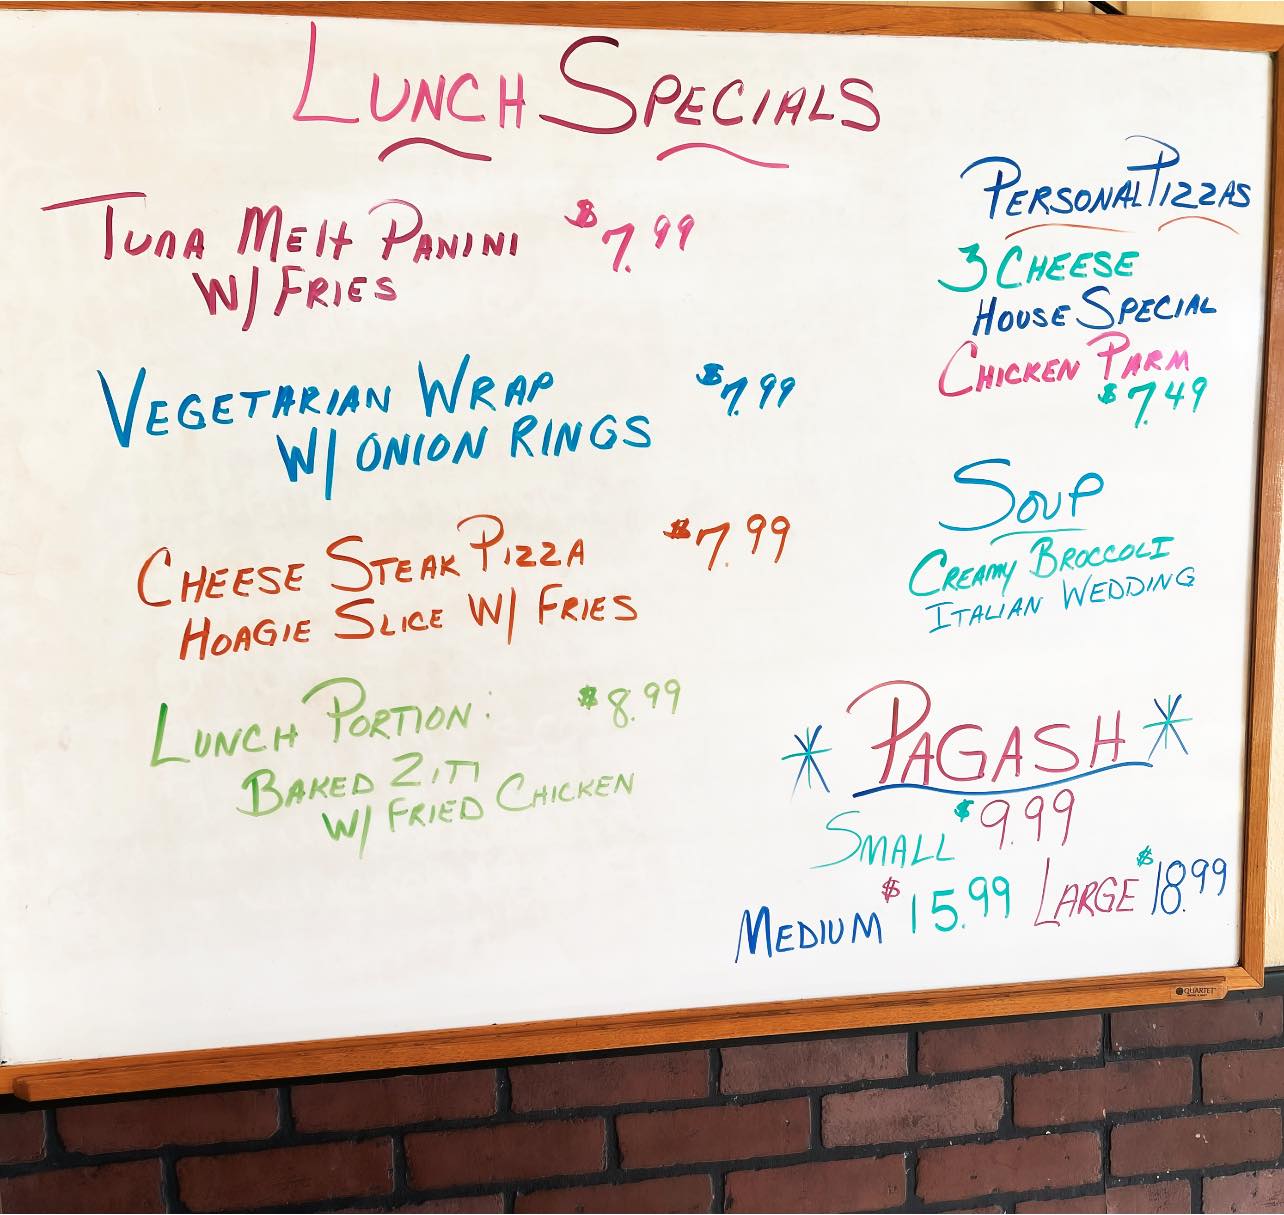 LUNCH SPECIALS
TUNA MELT PANINI $7.99
W/ FRIES
VEGETARIAN WRAP $7.99
W/ ONION RINGS
CHEESE STEAK PIZZA $7.99
HOAGIE SLICE W/ FRIES
LUNCH PORTION: $8.99
BAKED ZITI
W/ FRIED CHICKEN
PERSONAL PIZZAS
3 CHEESE
HOUSE SPECIAL
CHICKEN PARM
$7.49
SOUP
CREAMY BROCCOLI
ITALIAN WEDDING
* PAGASH *
SMALL $9.99
MEDIUM $15.99 LARGE $18.99
QUARTET